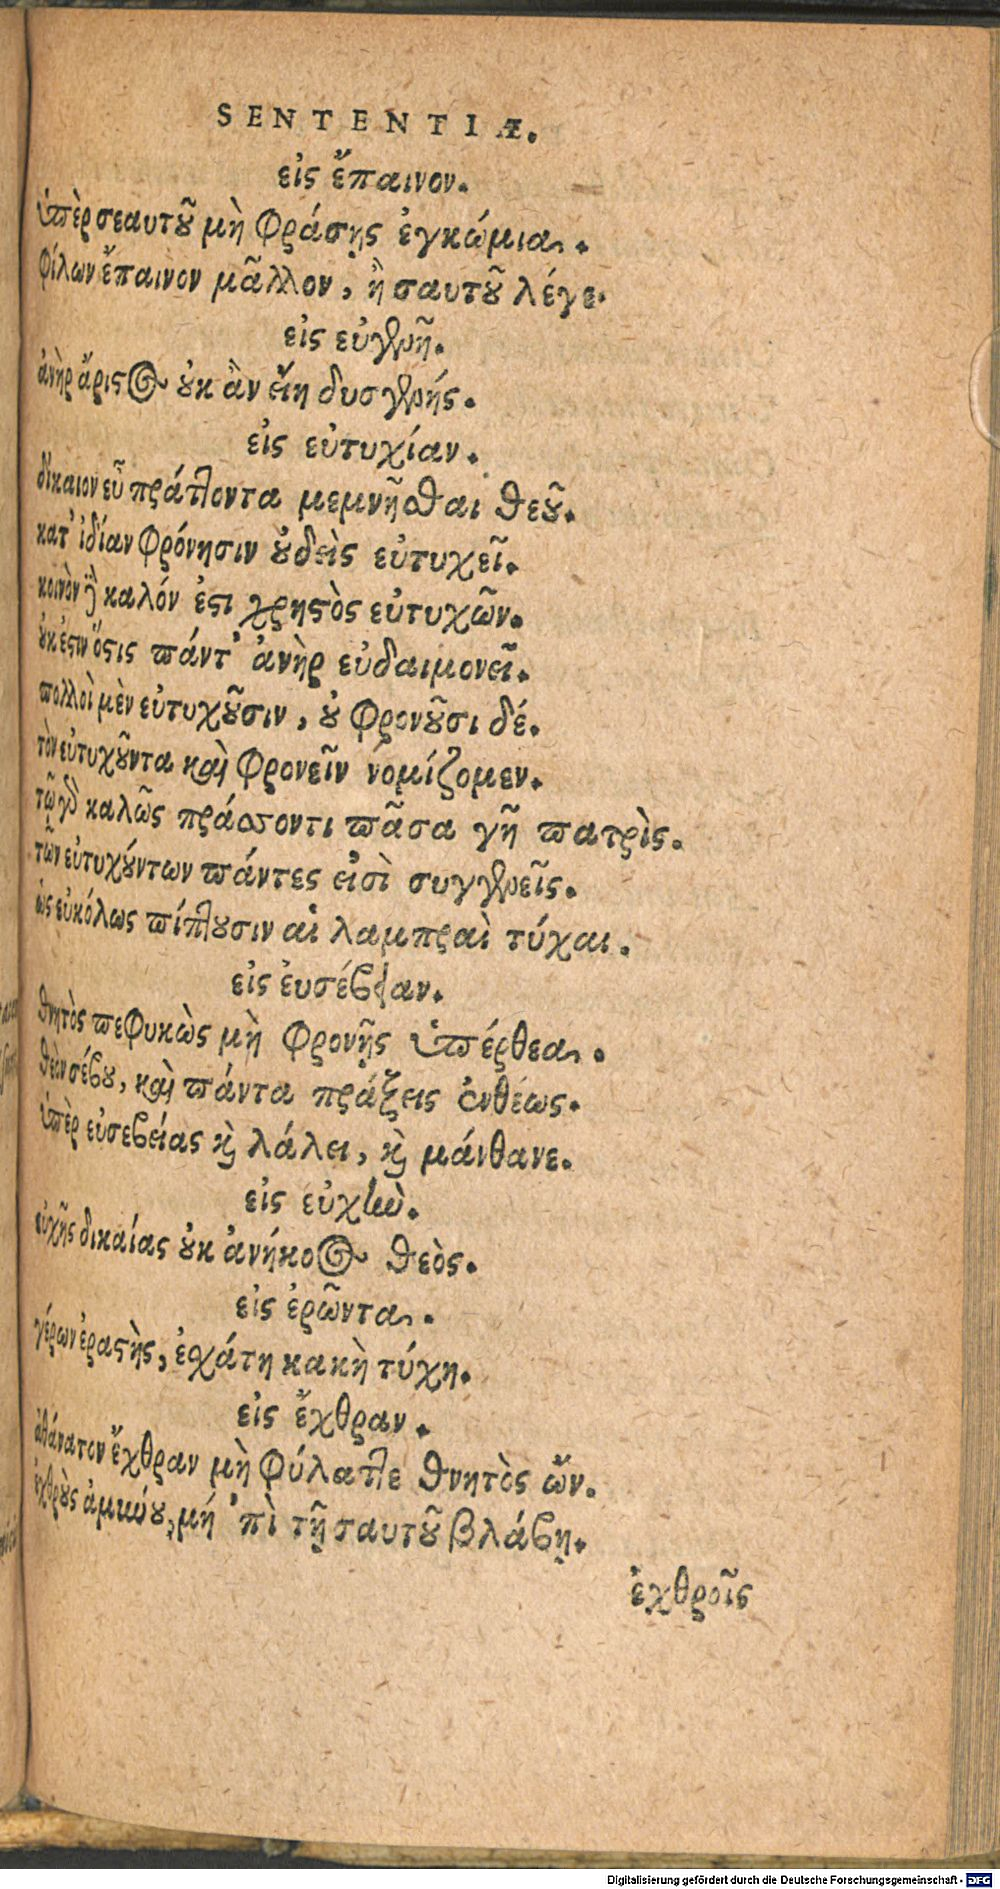 SENTENTIÆ.
εἰς ἔπαινον.
ὑπὲρ σεαυτοῦ μὴ φράσῃς ἐγκώμια.
φίλων ἔπαινον μᾶλλον, ἢ σαυτοῦ λέγε.
εἰς εὐγενῆ.
ἀνὴρ ἄριστος οὐκ ἂν εἴη δυσγενής.
εἰς εὐτυχίαν.
δίκαιον εὖ πράττοντα μεμνῆσθαι θεοῦ.
κατ' ἰδίαν φρόνησιν οὐδεὶς εὐτυχεῖ.
κοινὸν γὰρ καλόν ἐστι χρηστὸς εὐτυχῶν.
οὐκ ἔστιν ὅστις πάντ' ἀνὴρ εὐδαιμονεῖ.
πολλοὶ μὲν εὐτυχοῦσιν, οὐ φρονοῦσι δέ.
τὸν εὐτυχοῦντα καὶ φρονεῖν νομίζομεν.
τῷ γὰρ καλῶς πράσσοντι πᾶσα γῆ πατρὶς.
τῶν εὐτυχούντων πάντες εἰσὶ συγγενεῖς.
ὡς εὐκόλως πίπτουσιν αἱ λαμπραὶ τύχαι.
εἰς ἐυσέβειαν.
θνητὸς πεφυκὼς μὴ φρονῇς ὑπέρθεα.
θεὸν σέβου, καὶ πάντα πράξεις ἐνθέως.
ὑπὲρ εὐσεβείας καὶ λάλει, καὶ μάνθανε.
εἰς εὐχὴν.
εὐχῆς δικαίας οὐκ ἀνήκοος θεὸς.
εἰς ἐρῶντα.
γέρων ἐραστὴς, ἐσχάτη κακὴ τύχη.
εἰς ἔχθραν.
ἀθάνατον ἔχθραν μὴ φύλαττε θνητὸς ὤν.
ἐχθροὺς ἀμύνου, μή 'πὶ τῇ σαυτοῦ βλάβῃ.
ἐχθροῖς
Digitalisierung gefördert durch die Deutsche Forschungsgemeinschaft - DFG